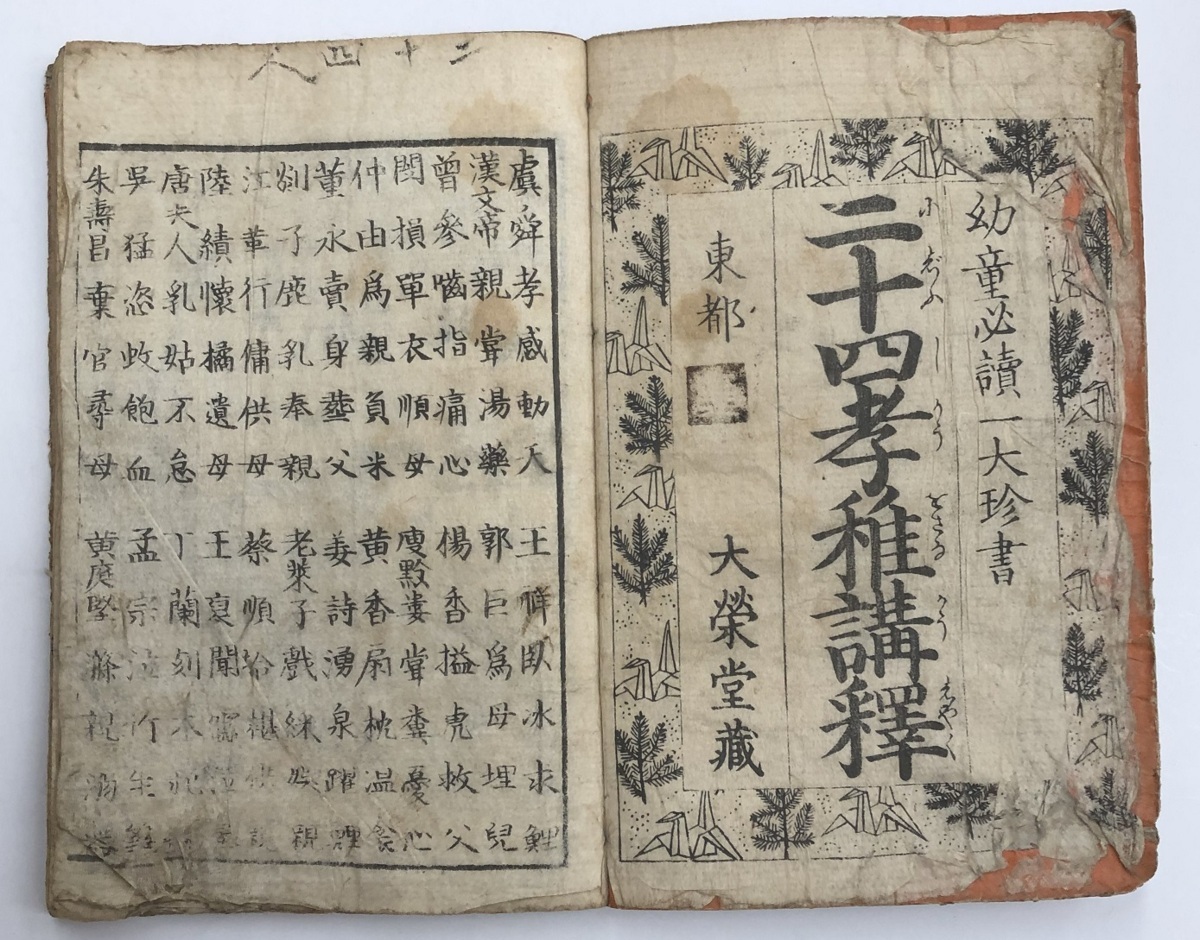 幼童必讀一大珍書
にじふしかうをさなかうしやく
二十四孝稚講釋
東都 大榮堂藏
二十四人
虞舜孝感動天 王祥臥冰求鯉
漢文帝親甞湯藥 郭巨爲母埋兒
曾參嚙指痛心 楊香搤虎救父
閔損單衣順母 庾黔婁甞糞憂心
仲由爲親負米 黄香扇枕温衾
董永賣身葬父 姜詩湧泉躍鯉
剡子鹿乳奉親 老莱子戲綵娯親
江革行傭供母 蔡順拾椹供親
陸績懷橘遺母 王裒聞
唐夫人乳姑不怠 丁蘭刻木
吳猛恣蚊飽血 孟宗泣竹生
朱壽昌棄官尋母 黄庭堅滌親溺